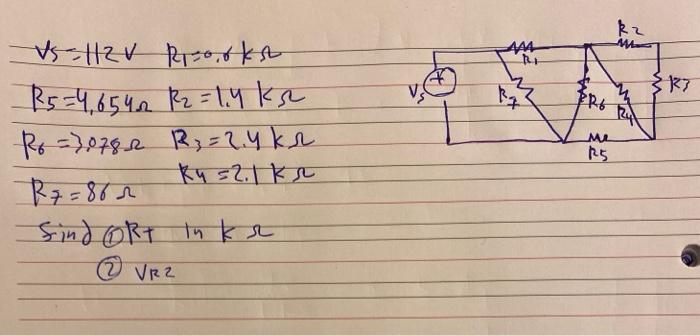 Vs=112V R1=0.6 kΩ
R5=4,654Ω R2=1.4 kΩ
R6=3,078Ω R3=2.4 kΩ
R4=2.1 kΩ
R7=86Ω
find ① RT in kΩ
② VR2
R2
R1
Vs
R7
R6
R4
R3
R5